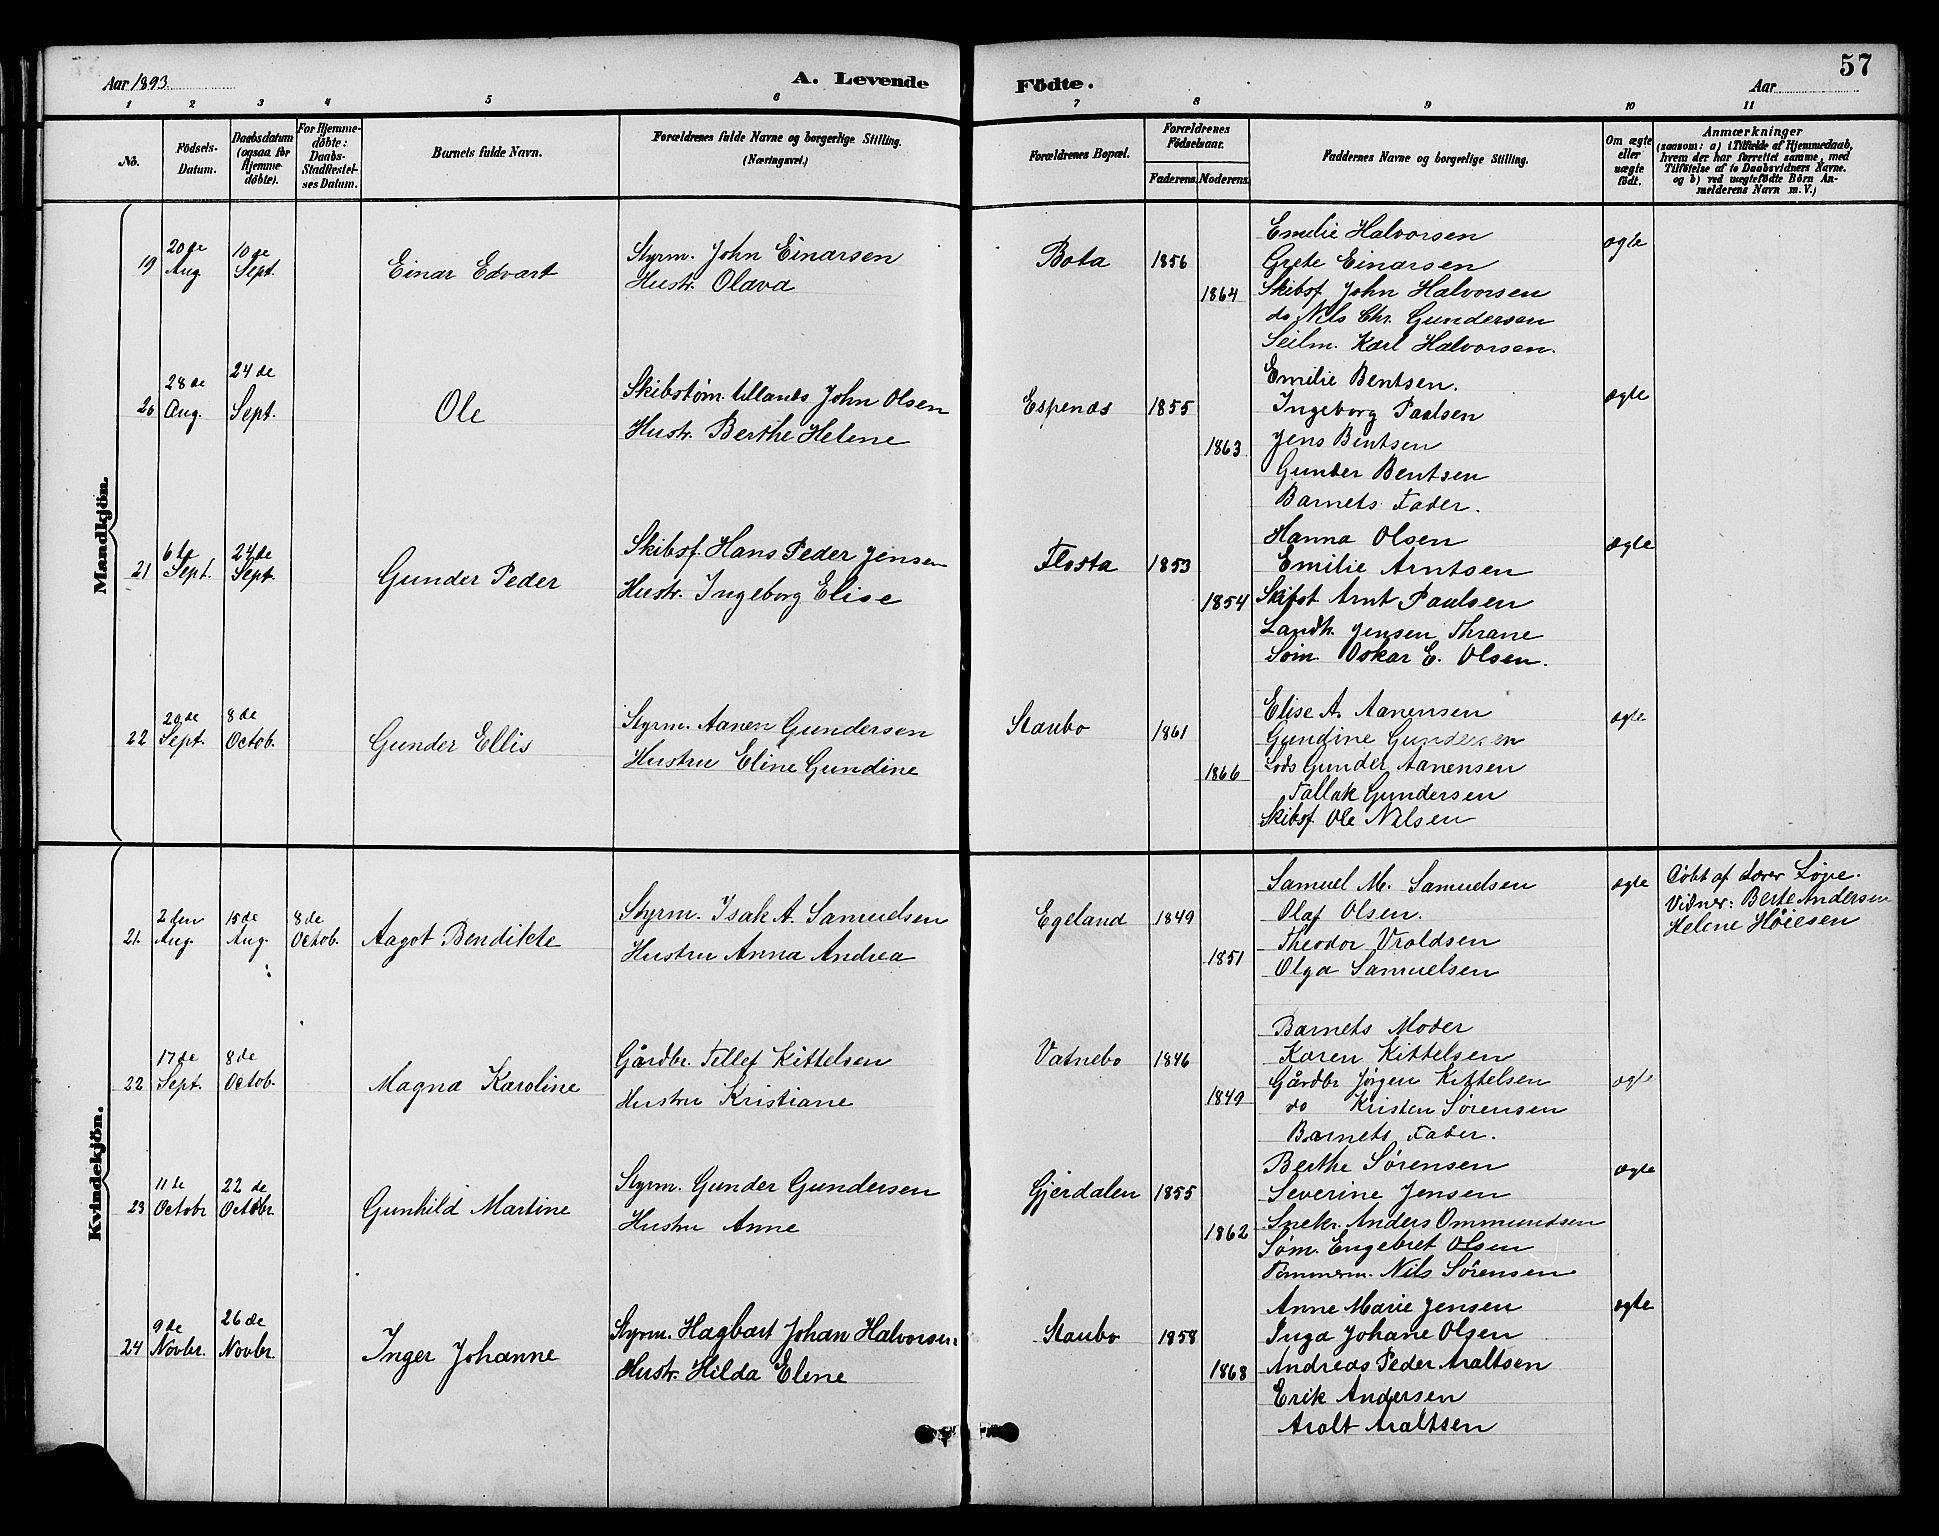 Aar 1893.
A. Levende Födte.
Aar
57
1 2 3 4 5 6 7 8 9 10 11
No.
Födsels-Datum.
Daabsdatum (ogsaa for Hjemmedöbte).
For Hjemmedöbte: Daabs-Stadfæstelses Datum.
Barnets fulde Navn.
Forældrenes fulde Navne og borgerlige Stilling. (Næringsvei.)
Forældrenes Bopæl.
Forældrenes Födselsaar.
Faderens. Moderens.
Faddernes Navne og borgerlige Stilling.
Om ægte eller uægte födt.
Anmærkninger
(saasom: a) i Tilfælde af Hjemmedaab, hvem der har forrettet samme, med Tilföielse af to Daabsvidners Navne. og b) ved uægtefödte Börn Anmelderens Navn m. V.)
Mandkjön.
19
20de Aug
10de Sept.
Einar Edvart
Styrm. John Einarsen
Hustr. Olava
Bota
1856
1864
Emilie Halvorsen
Grete Einarsen
Skibsf. John Halvorsen
do Nils Chr. Gundersen
Seilm. Karl Halvorsen.
ægte
20
28de Aug.
24de Sept.
Ole
Skibstøm. tillands John Olsen
Hustr. Berthe Helene
Espenæs
1855
1863
Emilie Bentsen.
Ingeborg Paulsen
Jens Bentsen
Gunder Bentsen
Barnets Fader.
ægte
21
6de Sept.
24de Sept.
Gunder Peder
Skibsf. Hans Peder Jensen
Hustr. Ingeborg Elise
Flosta
1853
1854
Hanna Olsen
Emilie Arntsen
Skibst Arnt Paulsen
Landh. Jensen Thrane
Søm. Oskar E. Olsen.
ægte
22
20de Sept.
8de Octob.
Gunder Ellis
Styrm. Aanen Gundersen
Hustru Eline Gundine
Staubo
1861
1866
Elise A. Aanensen
Gundine Gundersen
Lods Gunder Aanensen
Tallak Gundersen
Skibsf. Ole Nilsen
ægte
Kvindekjön.
21.
2den Aug.
15de Aug.
8de Octob.
Aagot Bendikte
Styrm. Isak A. Samuelsen
Hustru Anna Andrea
Egeland
1849
1851
Samuel M. Samuelsen
Olaf Olsen.
Theodor Vroldsen
Olga Samuelsen
ægte
Døbt af Lærer Løpe.
Vidner: Berte Andersen
Helene Høiesen
22
17de Sept.
8de Octob.
Magna Karoline
Gårdbr. Tellef Kittelsen
Hustru Kristiane
Vatnebo
1846
1849
Barnets Moder
Karen Kittelsen
Gårdbr Jørgen Kittelsen
do Kristen Sørensen
Barnets Fader.
ægte
23
11te Octobr
22de Octobr.
Gunhild Martine
Styrm. Gunder Gundersen
Hustru Anne
Gjerdalen
1855
1862
Berthe Sørensen
Severine Jensen
Snekr. Anders Ommundsen
Søm. Engebret Olsen
Tømmerm. Nils Sørensen
ægte
24
9de Novbr.
26de Novbr.
Inger Johanne
Styrm. Hagbart Johan Halvorsen
Hustr. Hilda Eline
Staubo
1858
1868
Anne Marie Jensen
Inga Johane Olsen
Andreas Peder Araltsen
Erik Andersen
Aralt Araltsen
ægte